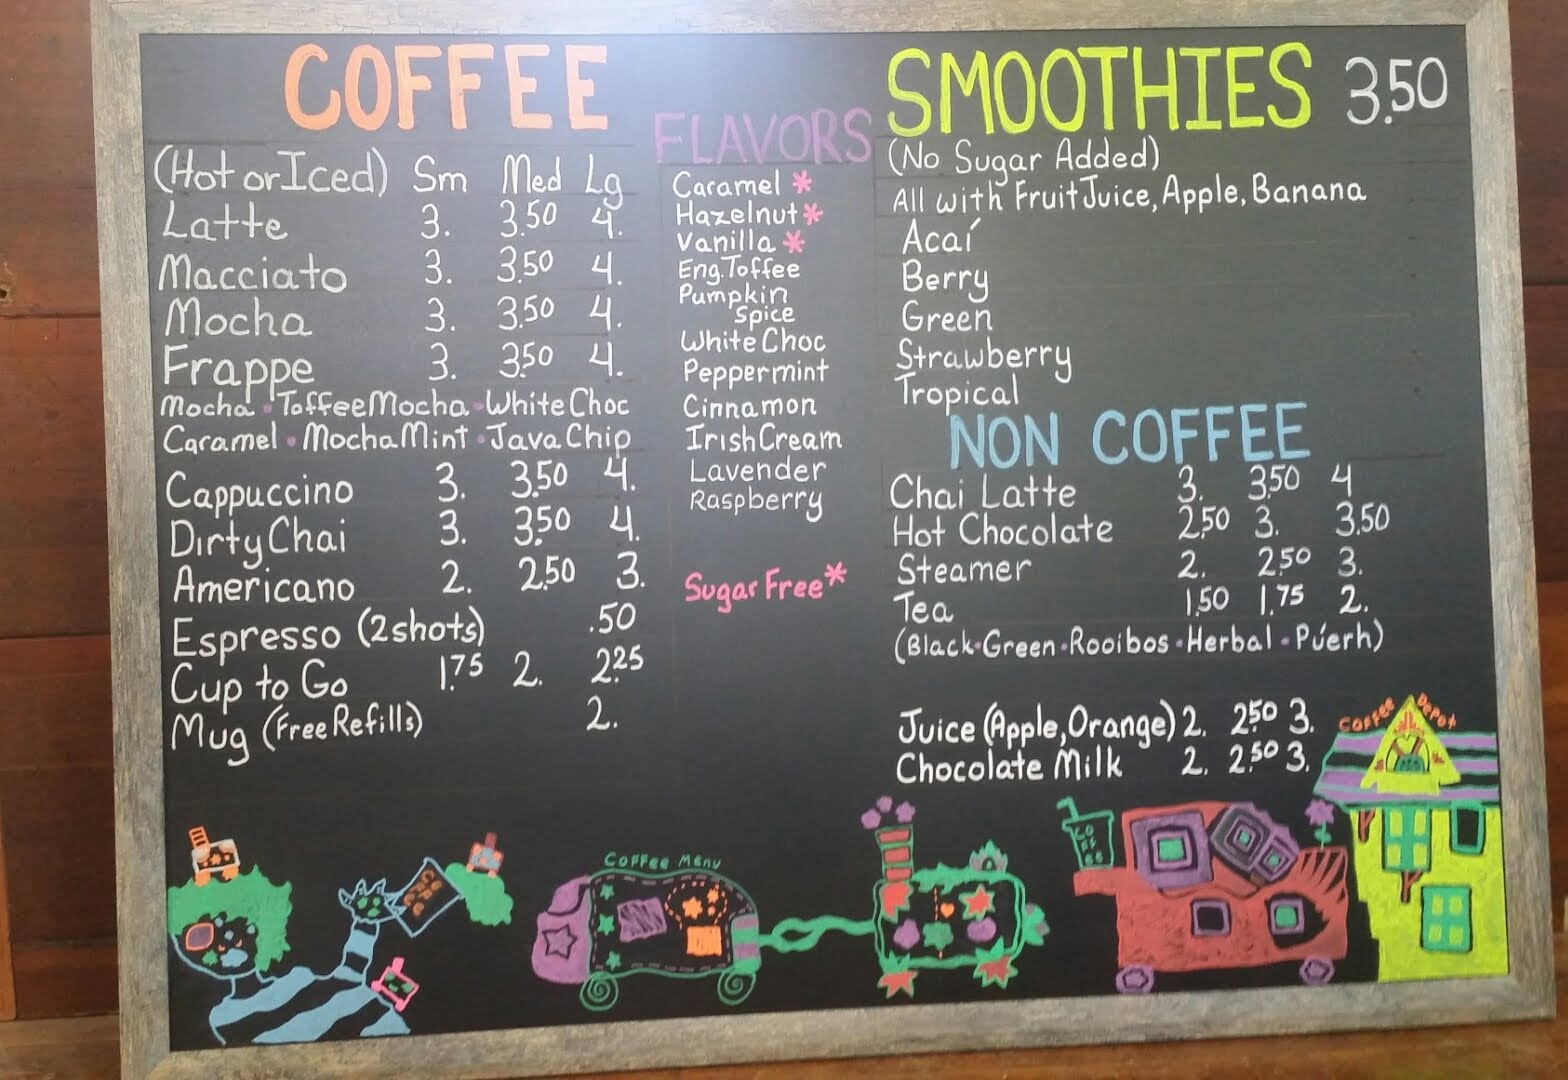 COFFEE
(Hot or Iced) Sm Med Lg
Latte 3. 3.50 4.
Macciato 3. 3.50 4.
Mocha 3. 3.50 4.
Frappe 3. 3.50 4.
Mocha • Toffee Mocha • White Choc
Caramel • Mocha Mint • Java Chip
Cappuccino 3. 3.50 4.
Dirty Chai 3. 3.50 4.
Americano 2. 2.50 3.
Espresso (2 shots) .50
Cup to Go 1.75 2. 2.25
Mug (Free Refills) 2.
FLAVORS
Caramel *
Hazelnut *
Vanilla *
Eng. Toffee
Pumpkin
Spice
White Choc
Peppermint
Cinnamon
Irish Cream
Lavender
Raspberry
Sugar Free *
SMOOTHIES 3.50
(No Sugar Added)
All with Fruit Juice, Apple, Banana
Acaí
Berry
Green
Strawberry
Tropical
NON COFFEE
Chai Latte 3. 3.50 4
Hot Chocolate 2.50 3. 3.50
Steamer 2. 2.50 3.
Tea 1.50 1.75 2.
(Black • Green • Rooibos • Herbal • Púerh)
Juice (Apple, Orange) 2. 2.50 3.
Chocolate Milk 2. 2.50 3.
Coffee Depot
Coffee Menu